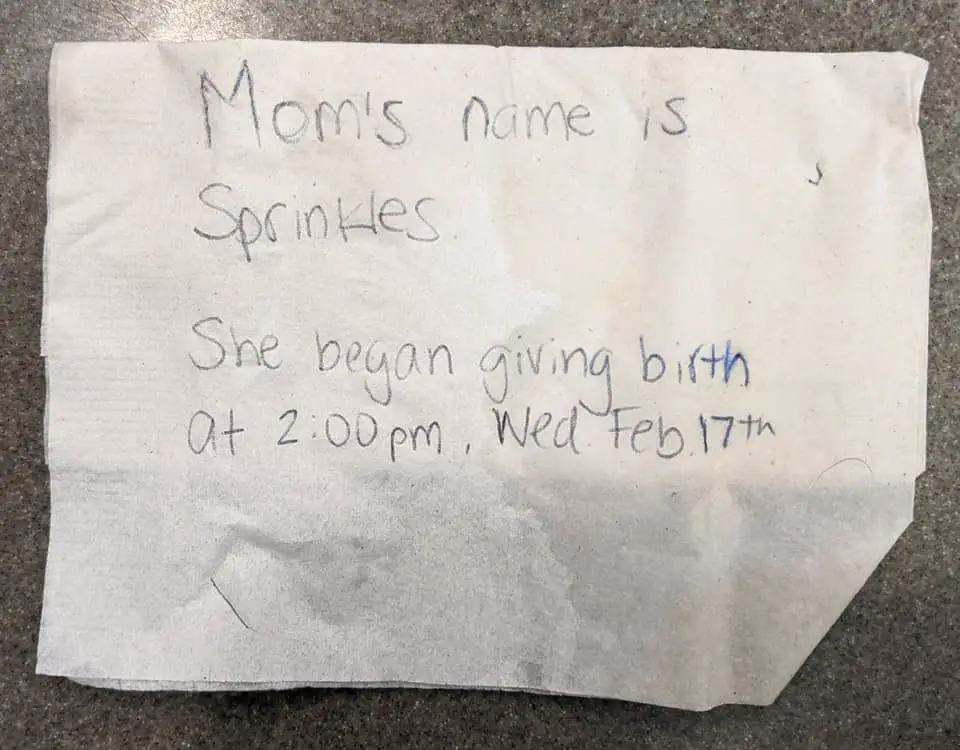 Mom's name is
Sprinkles.
She began giving birth
at 2:00pm, Wed Feb.17th